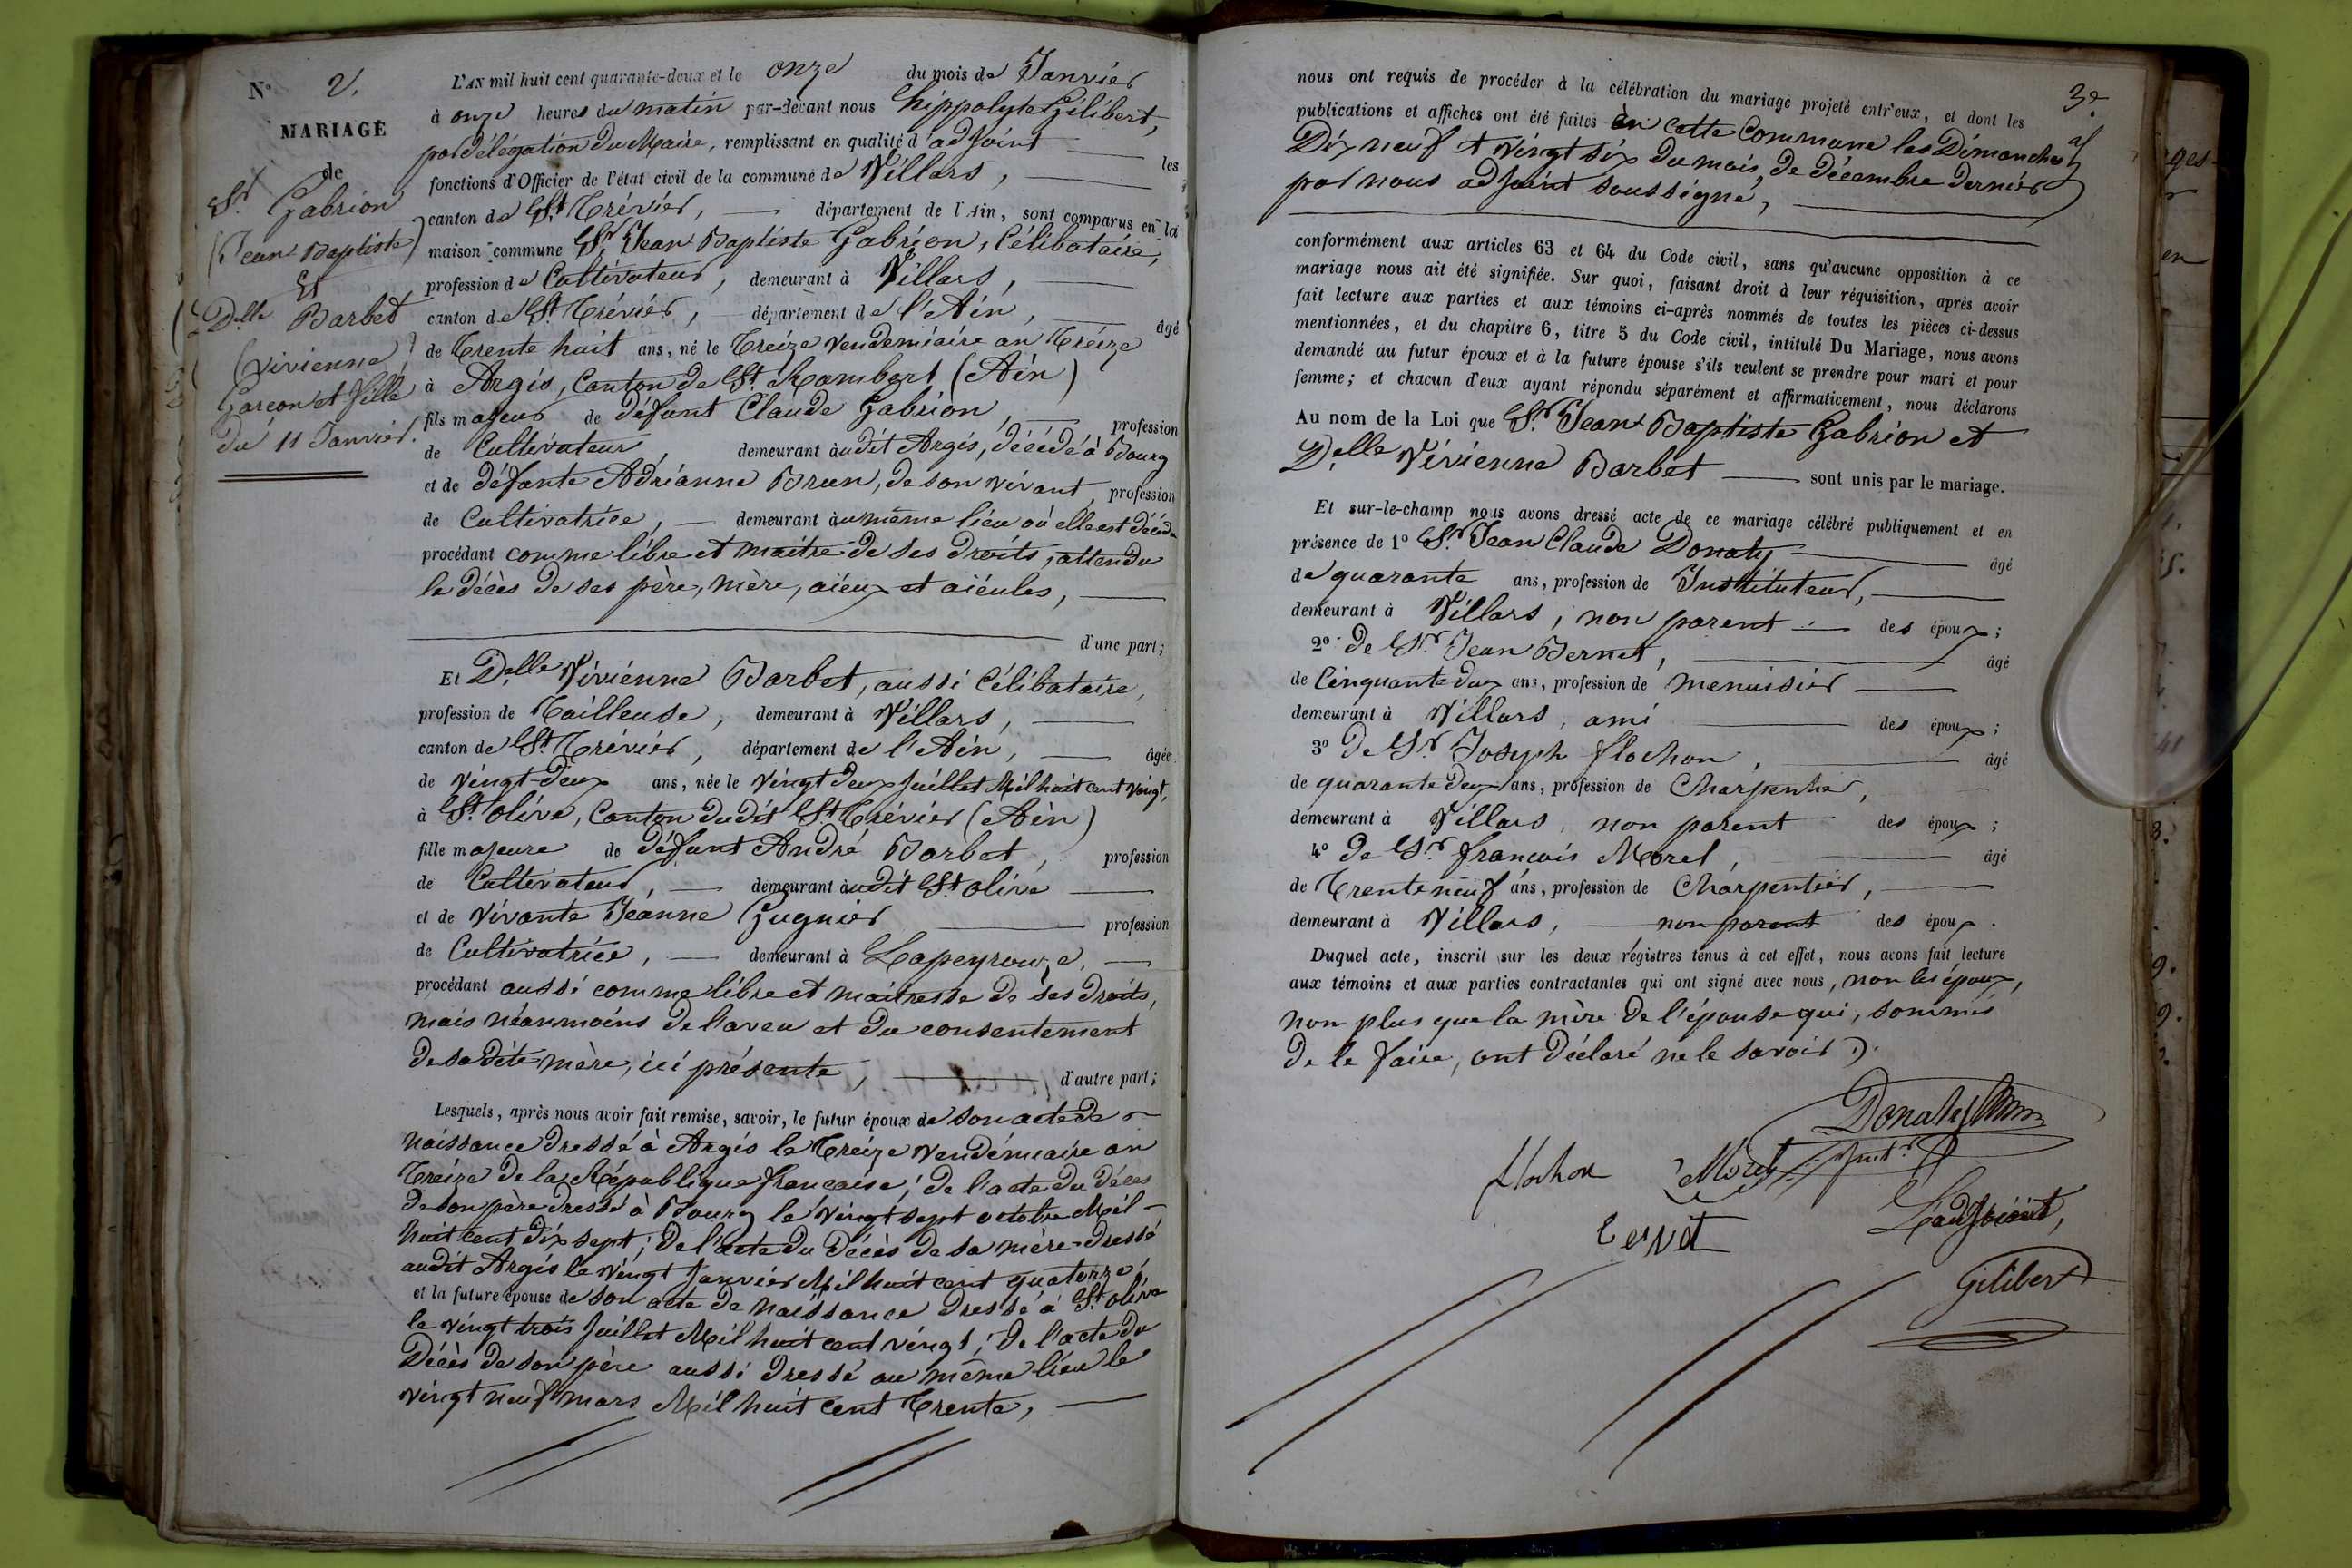 N° 2.
MARIAGE
de
Sr. Gabrion
(Jean Baptiste)
Et
Delle Barbet
(Vivienne)
Garçon et fille
Du 11 Janvier.
L'AN mil huit cent quarante-deux et le onze du mois de Janvier
à onze heures du matin par-devant nous hippolyte Gilibert,
par délégation du Maire, remplissant en qualité d'adjoint les
fonctions d'Officier de l'état civil de la commune de Villars,
canton de St. Trévier, département de l'Ain, sont comparus en la
maison commune Sr. Jean Baptiste Gabrion, Célibataire,
profession de Cultivateur, demeurant à Villars,
canton de St. Trévier, département de l'Ain, âgé
de Trente huit ans, né le Treize Vendemiaire an Treize
à Argis, Canton de St. Rambert (Ain)
fils majeur de défunt Claude Gabrion, profession
de Cultivateur, demeurant audit Argis, décédé à Bourg
et de défunte Adrianne Brun, de son vivant, profession
de Cultivatrice, demeurant au même lieu où elle est décédée
procédant comme libre et maitre de ses droits, attendu
le décès de ses père, mère, aieux et aieules,
d'une part;
Et Delle Vivienne Barbet, aussi Célibataire,
profession de Tailleuse, demeurant à Villars,
canton de St. Trévier, département de l'Ain, âgée
de Vingt-Deux ans, née le Vingt deux Juillet Mil huit cent Vingt,
à St. Olive, Canton dudit St. Trévier (Ain)
fille majeure de défunt André Barbet, profession
de Cultivateur, demeurant audit St. Olive
et de vivante Jeanne Gugnier profession
de Cultivatrice, demeurant à Lapeyrouze,
procédant aussi comme libre et maitresse de ses droits,
mais néanmoins de l'aveu et du consentement
de sa dite mère, ici présente, d'autre part;
Lesquels, après nous avoir fait remise, savoir, le futur époux de son acte de
naissance dressé à Argis le Treize Vendémiaire an
Treize de la République française; de l'acte du décès
de son père dressé à Bourg le vingt sept octobre Mil
huit cent dix sept; de l'acte du décès de sa mère dressé
audit Argis le vingt Janvier Mil huit cent quatorze;
et la future épouse de son acte de naissance dressé à St. Olive
le vingt trois Juillet Mil huit cent vingt; de l'acte du
Décès de son père aussi dressé au même lieu le
vingt neuf mars Mil huit cent Trente,
3e
nous ont requis de procéder à la célébration du mariage projeté entr'eux, et dont les
publications et affiches ont été faites en cette Commune les Dimanches
Dix neuf et vingt six du mois de décembre dernier
par nous adjoint soussigné,
conformément aux articles 63 et 64 du Code civil, sans qu'aucune opposition à ce
mariage nous ait été signifiée. Sur quoi, faisant droit à leur réquisition, après avoir
fait lecture aux parties et aux témoins ci-après nommés de toutes les pièces ci-dessus
mentionnées, et du chapitre 6, titre 5 du Code civil, intitulé Du Mariage, nous avons
demandé au futur époux et à la future épouse s'ils veulent se prendre pour mari et pour
femme; et chacun d'eux ayant répondu séparément et affirmativement, nous déclarons
Au nom de la Loi que Sr. Jean Baptiste Gabrion et
Delle Vivienne Barbet sont unis par le mariage.
Et sur-le-champ nous avons dressé acte de ce mariage célébré publiquement et en
présence de 1° Sr. Jean Claude Donaty âgé
de quarante ans, profession de Instituteur,
demeurant à Villars, non parent des époux;
2° de Sr. Jean Bernet, âgé
de Cinquante deux ans, profession de menuisier
demeurant à Villars, ami des époux;
3° de Sr. Joseph flochon, âgé
de quarante deux ans, profession de Charpentier,
demeurant à Villars, non parent des époux;
4° de Sr. françois Morel, âgé
de Trente neuf ans, profession de Charpentier,
demeurant à Villars, non parent des époux.
Duquel acte, inscrit sur les deux régistres tenus à cet effet, nous avons fait lecture
aux témoins et aux parties contractantes qui ont signé avec nous, non les époux,
non plus que la mère de l'épouse qui, sommés
de le faire, ont déclaré ne le savoir.
Donaty
flochon Morel
L'adjoint,
Gilibert